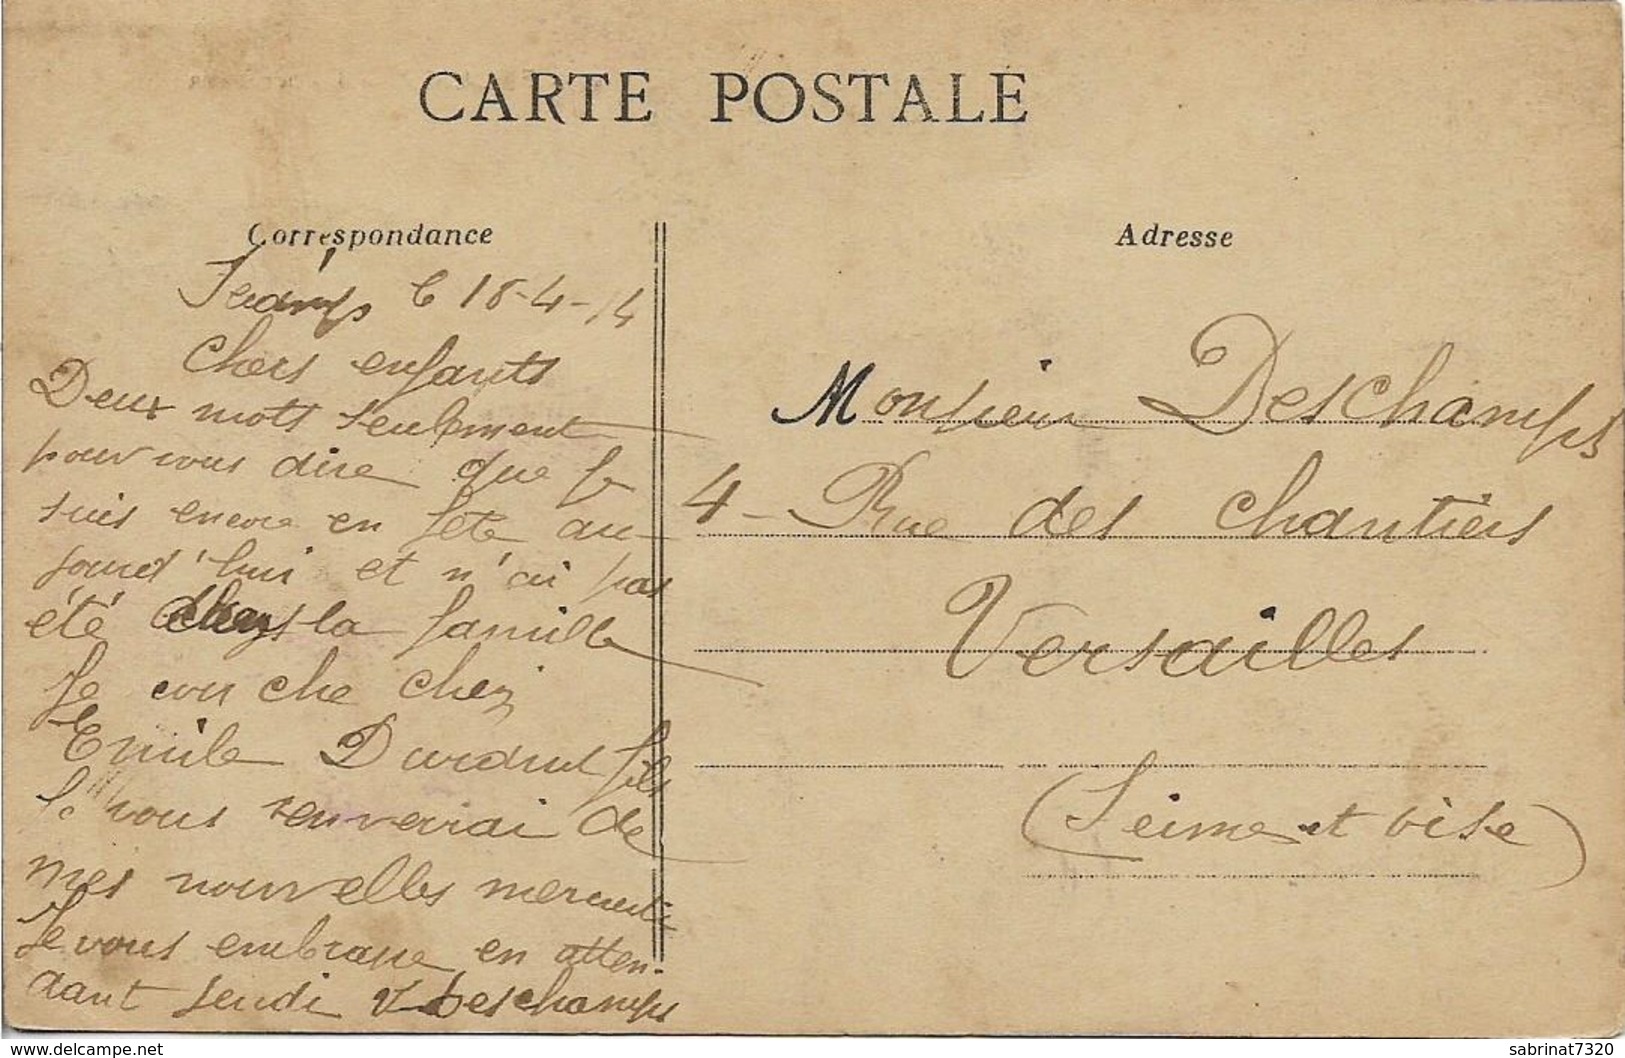 CARTE POSTALE
Correspondance
le 18-4-14
Chers enfants
Deux mots seulement
pour vous dire que je
suis encore en fête au-
jourd'hui et n'ai pas
été dans la famille
Je couche chez
Emile Durand fils
Je vous renverrai de
mes nouvelles mercredi
Je vous embrasse en atten-
dant jeudi V Deschamps
Adresse
Monsieur Deschamps
4 - Rue des Chantiers
Versailles
(Seine et Oise)
delcampe.net
sabrinat7320